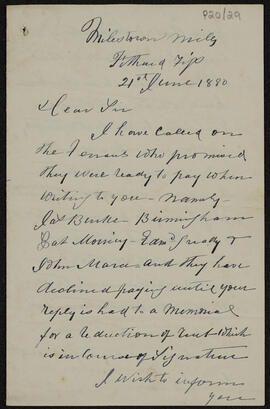 P20/29
Milestown Mills
Fethard Tip
21st June 1880
Dear Sir
I have called on
the Tenants who promised
they were ready to pay when
writing to you - namely -
Jas Burke - Birmingham
Pat Morrisy - Edmd &
John Mara - and they have
declined paying until your
reply is had to a Memorial
for a reduction of rent which
is in course of Signature
I wish to inform
you